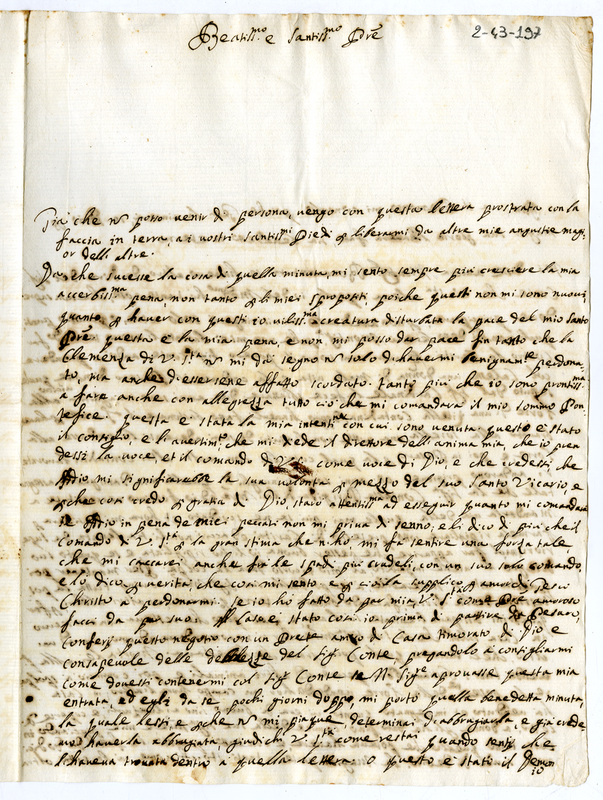 Beatiss.mo e Santiss.mo Pre
2-43-197
Già che nō posso venir di persona, vengo con questa lettera prostrata con la
faccia in terra a i vostri santiss.mi Piedi p liberarmi da altre mie angustie magi
or dell altre.
Da che sucesse la cosa di quella minuta, mi sento sempre più crescere la mia
accerbiss.ma pena, non tanto p li miei spropositi poiche questi non mi sono nuoui,
quanto p hauer con questi io viliss.ma creatura disturbata la pace del mio Santo
Pre questa è la mia pena, e non mi posso dar pace fin tanto che la
Clemenza di V. S.tà nō mi dà segno nō solo di hauermi benignam.te perdona-
to, ma anche d'essersene affatto scordato. tanto più che io sono prontiss.ma
a fare anche con allegrezza tutto ciò che mi comandarà il mio sommo Pon
tefice. questa è stata la mia intenti.ne con cui sono venuta questo è stato
il consiglio, e li auertim.ti che mi diede il direttore dell anima mia, che io pren
dessi la voce, et il comando di come voce di Dio, e che credessi, che
Iddio mi significarebbe la sua volontà p mezzo del suo Santo Vicario e
pche così credo p gratia di Dio, starò attentiss.ma ad esseguir quanto mi comandarà
se Iddio in pena de miei peccati non mi priua di senno, e li dico di più che il
Comando di V. S.tà p la gran stima che n'hò mi fà sentire una forza tale
che mi caccarei anche frà le spade più crudeli, con un suo solo comando,
e lo dico p uerità, che così mi sento e p ciò la supplico p amor di Giesù
Christo a perdonarmi. se io hò fatto da par mia, V. S.tà come Pre amoroso
facci da par suo. Il caso è stato così io prima di partire da Pesaro,
conferij questo negotio con un Prete amico di Casa timorato di Dio e
consapeuole delle debolezze del Sig.r Conte pregandolo a consigliarmi
come douesti contenermi col Sig.r Conte se N. Sig.re aprouasse questa mia
entrata, ed egli da se pochi giorni doppo, mi portò quella benedetta minuta,
la quale lesti e pche nō mi piaque, determinai d'abbrugiarla, e già crede
uo hauerla abbrugiata, giudichi V. S.tà come restai quando sentij che
l'haueua trouata dentro a quella lettera. o questo è stato il Demon
io